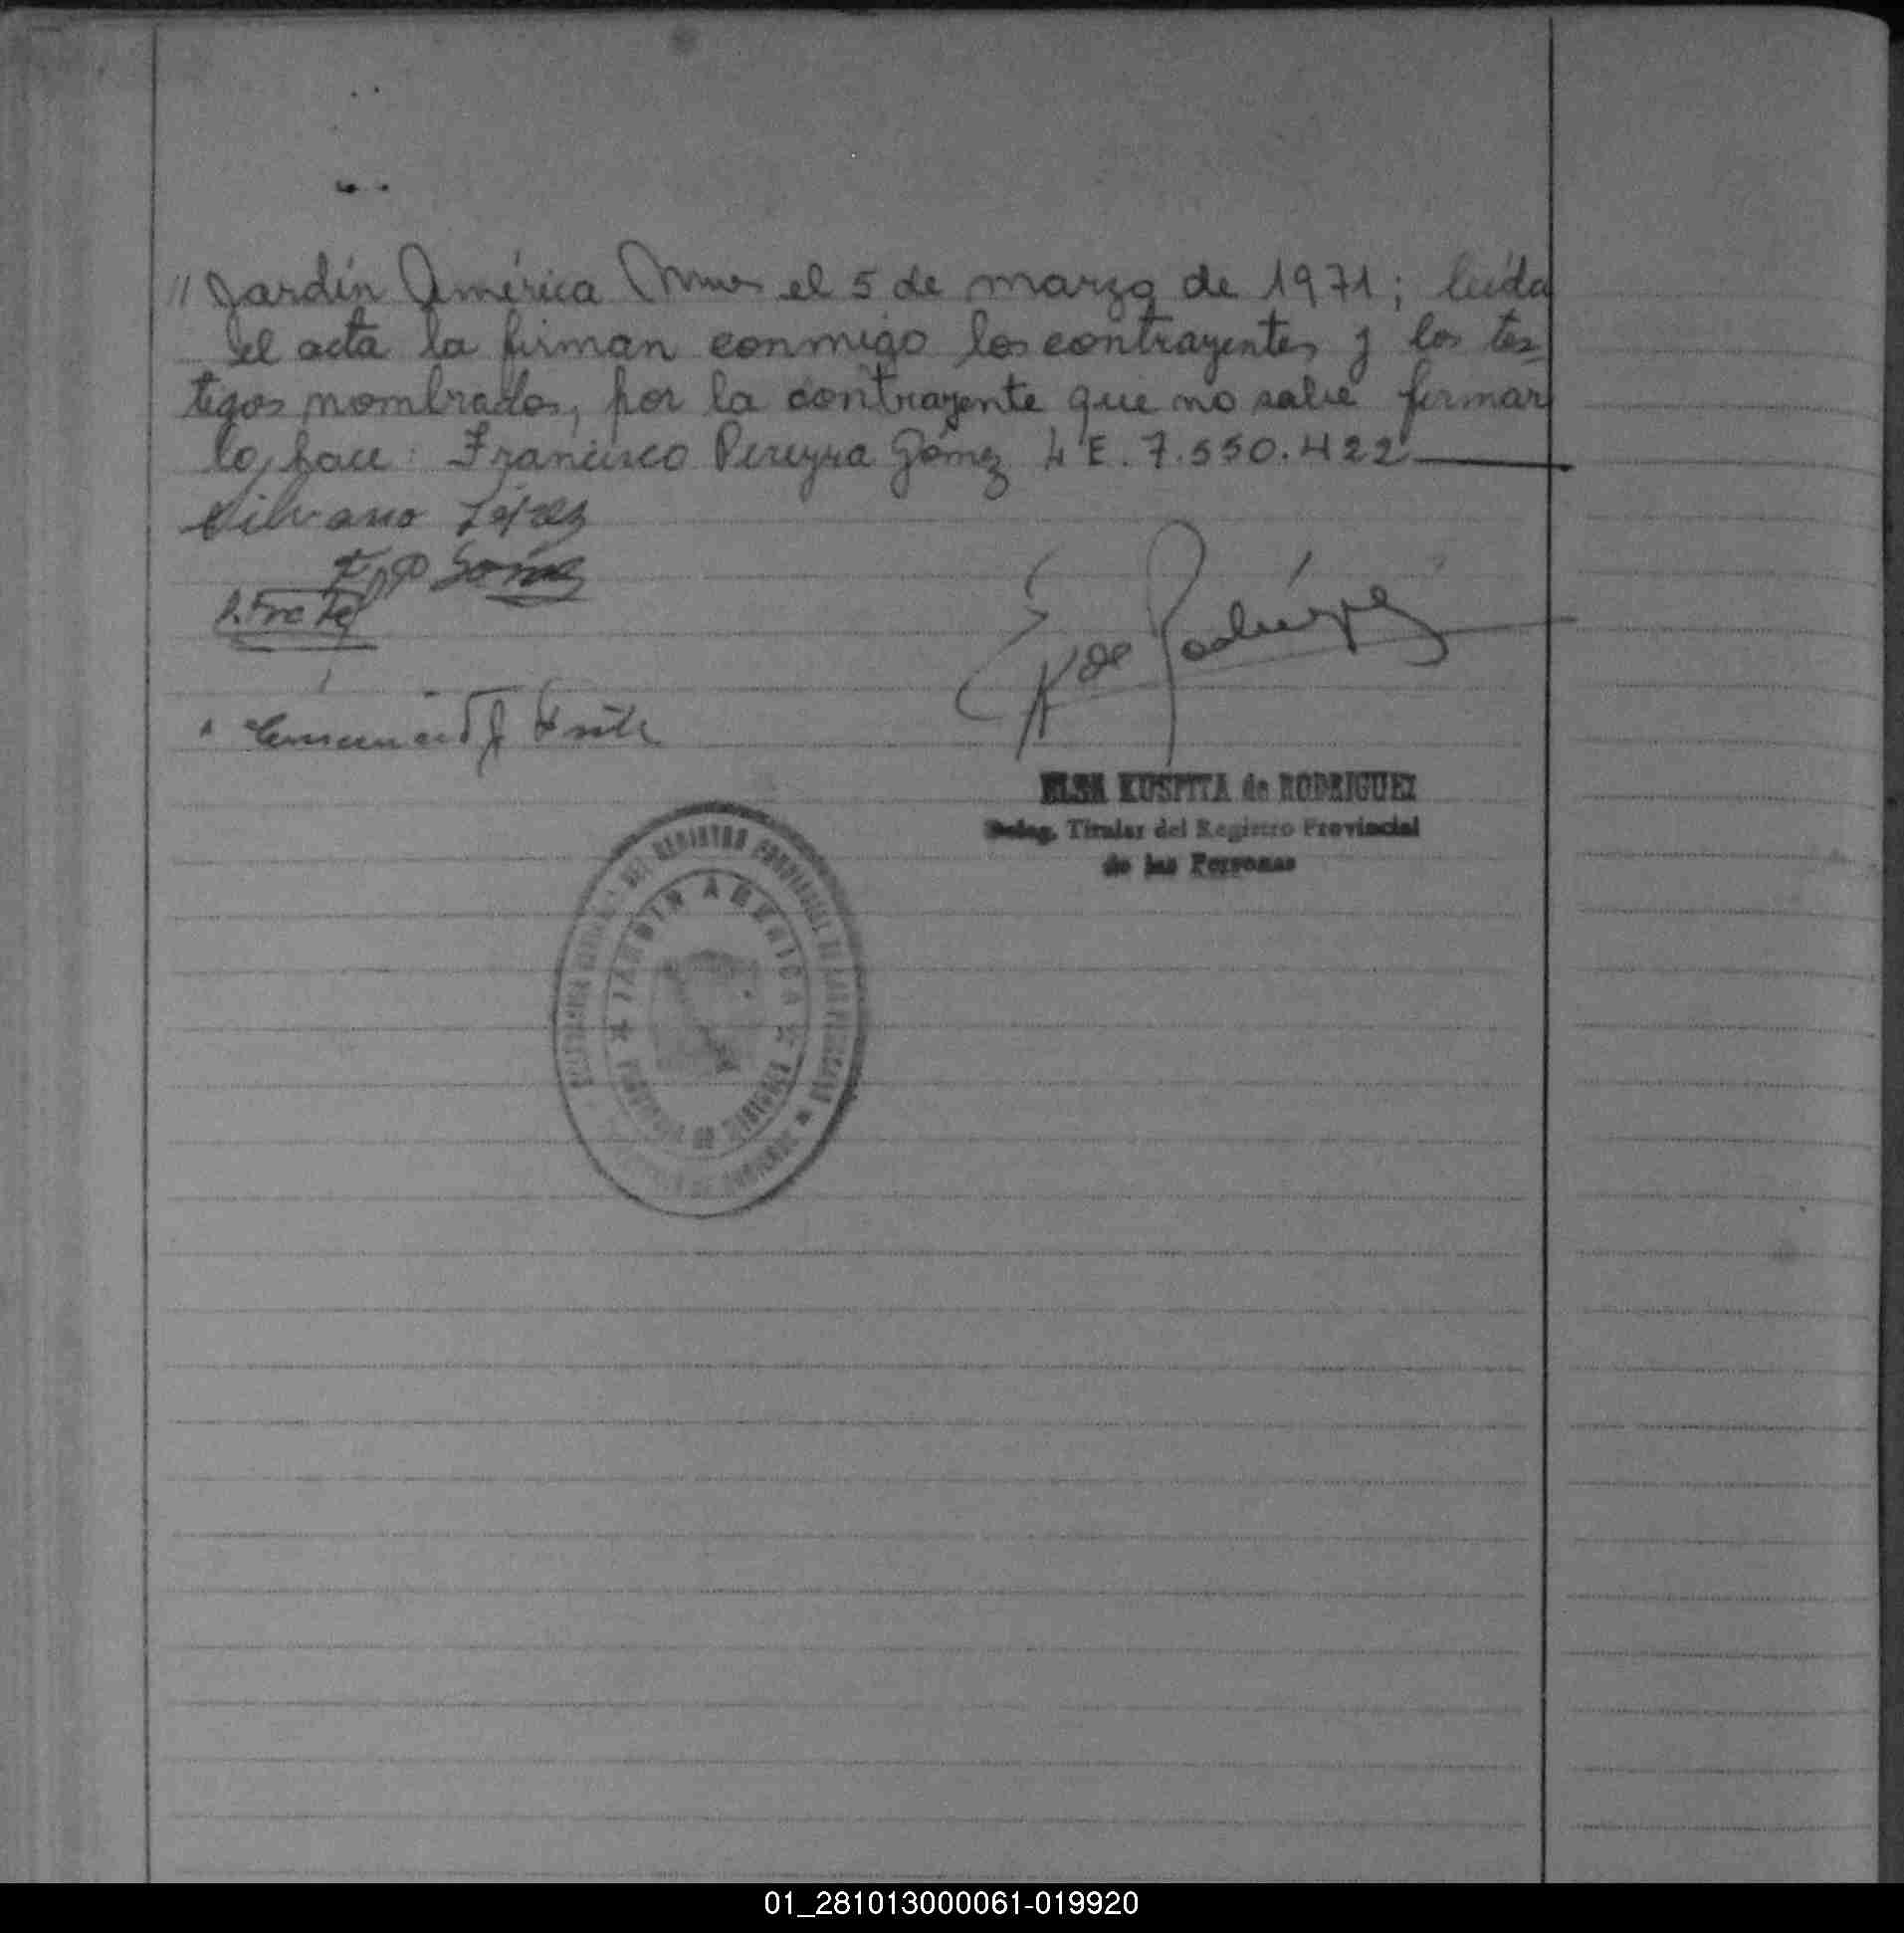 // Jardín América Mnes el 5 de marzo de 1971; leída
el acta la firman conmigo los contrayentes y los tes-
tigos nombrados, por la contrayente que no sabe firmar
lo hace: Francisco Pereyra Gómez L E. 7.550.422
Silvano López
Gómez
K de Rodríguez
ELSA KUSPITA de RODRIGUEZ
Deleg. Titular del Registro Provincial
de las Personas
DEL REGISTRO PROVINCIAL DE LAS PERSONAS
JARDIN AMERICA
PROVINCIA DE MISIONES
01_281013000061-019920